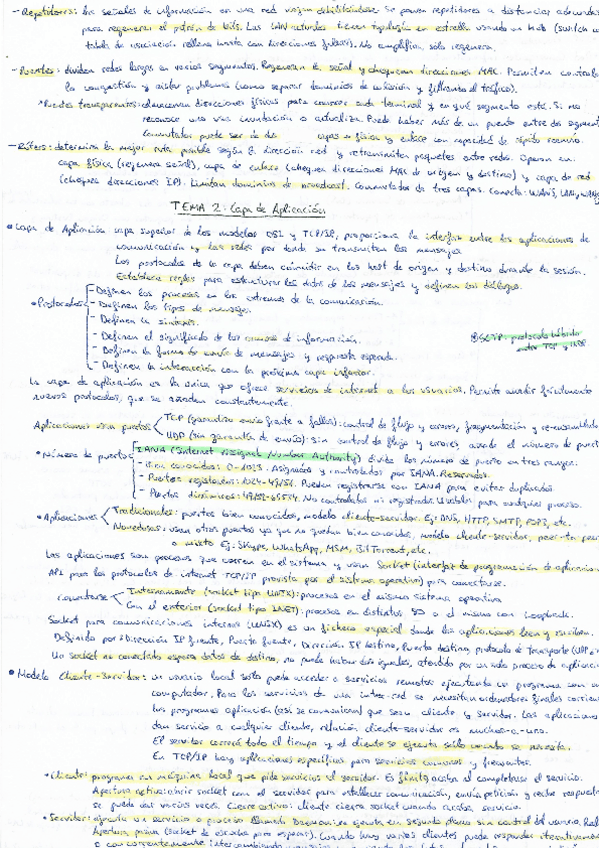 - Repetidores: las señales de información en una red viajan debilitándose se ponen repetidores a distancias adecuadas
para regenerar el patrón de bits. Las LAN actuales tienen topología en estrella usando un hub (switch
tabla de asociación rellena hasta con direcciones físicas). No amplifica, solo regenera.
- Puentes: dividen redes largas en varios segmentos. Regeneran la señal y chequean direcciones MAC. Permiten controlar
la congestión y aislar problemas (como separar dominios de colisión y filtrando el tráfico).
Puentes transparentes: almacenan direcciones físicas para conocer cada terminal y en qué segmento está. Si no
reconoce una usa inundación o actualiza. Puede haber más de un puente entre dos segmentos
Conmutador puede ser de dos capas o física y enlace con capacidad de rápido reenvío.
- Routers: determina la mejor ruta posible según la dirección red y retransmiten paquetes entre redes. Operan en
capa física (regenera señal), capa de enlace (chequea direcciones MAC de origen y destino) y capa de red
(chequea direcciones IP). Limitan dominios de broadcast. Conmutador de tres capas. Conecta: WANS, LAN,
TEMA 2: Capa de Aplicación
• Capa de Aplicación capa superior de los modelos OSI y TCP/IP, proporciona la interfaz entre las aplicaciones de
comunicación y las redes por donde se transmiten los mensajes
Los protocolos de la capa deben coincidir en los host de origen y destino durante la sesión.
Establece reglas para estructurar los datos de los mensajes y definen los diálogos.
• Protocolos - Definen los procesos en los extremos de la comunicación.
- Definen los tipos de mensajes.
- Definen la sintaxis.
- Definen el significado de los campos de información.
- Definen la forma de envío de mensajes y respuesta esperada.
- Definen la interacción con la próxima capa inferior.
SCTP: protocolo híbrido
entre TCP y UDP
La capa de aplicación es la única que ofrece servicios de internet a los usuarios. Permite añadir fácilmente
nuevos protocolos, que se añaden constantemente.
Aplicaciones usan puertos TCP (garantiza envío frente a fallos): control de flujo y errores, fragmentación y re-ensamblado
UDP (sin garantía de envío): Sin control de flujo y errores, añade el número de puerto
• Número de puertos IANA (Internet Assigned Number Authority) divide los número de puerto en tres rangos:
- Bien conocidos: 0-1023. Asignados y controlados por IANA. Reservados.
- Puertos registrados: 1024-49151. Pueden registrarse con IANA para evitar duplicados
- Puertos dinámicos: No controlados ni registrados. Usables para cualquier proceso.
• Aplicaciones Tradicionales: puertos bien conocidos, modelo cliente-servidor. Ej: DNS, HTTP, SMTP, POP3, etc.
Novedosas: usan otros puertos ya que no quedan bien conocidos, modelo cliente-servidor, peer-to-peer
o mixto Ej: Skype, WhatsApp, MSM, BitTorrent, etc.
Las aplicaciones son procesos que corren en el sistema y usan Socket (interfaz de programación de aplicaciones
API para los protocolos de internet TCP/IP provista por el sistema operativo) para conectarse.
Conectarse Internamente (socket tipo UNIX): procesos en el mismo sistema operativo
Con el exterior (socket tipo INET): procesos en distintos SO o el mismo con loopback.
Socket para comunicaciones internas (UNIX) es un fichero especial donde las aplicaciones leen y escriben.
Definido por: Dirección IP fuente, Puerto fuente, Dirección IP destino, Puerto destino, protocolo de Transporte (UDP
Un socket no conectado espera datos de destino, no puede haber dos iguales, atendido por un solo proceso de aplicación
• Modelo Cliente-Servidor: un usuario local puede acceder a servicios remotos ejecutando un programa con
computador. Para los servicios de una inter-red se necesitan ordenadores finales corriendo
los programas aplicación (así se comunican) que sean cliente y servidor. Las aplicaciones
dan servicio a cualquier cliente, relación cliente-servidor es muchos-a-uno.
El servidor correrá todo el tiempo y el cliente se ejecuta sólo cuando se necesita.
En TCP/IP hay aplicaciones específicas para servicios comunes y frecuentes.
• Cliente: programa en máquina local que pide servicios al servidor. Es finito, acaba al completarse el servicio.
Apertura activa: abrir socket con el servidor para establecer comunicación, envía petición y recibe respuesta
se puede dar varias veces. Cierre activo: cliente cierra socket cuando acaba servicio.
• Servidor: ejecuta un servicio o proceso Daemon se ejecuta en segundo plano sin control del usuario.
Apertura pasiva (socket de escucha para esperar). Cuando hay varios clientes puede responder iterativamente
o concurrentemente: intercambiando